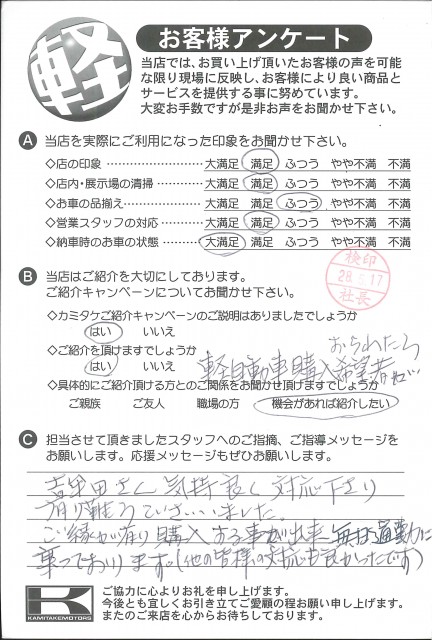 軽
お客様アンケート
当店では、お買い上げ頂いたお客様の声を可能
な限り現場に反映し、お客様により良い商品と
サービスを提供する事に努めています。
大変お手数ですが是非お声をお聞かせ下さい。
A 当店を実際にご利用になった印象をお聞かせ下さい。
◇店の印象 …………………… 大満足 満足 ふつう やや不満 不満
◇店内・展示場の清掃 ………… 大満足 満足 ふつう やや不満 不満
◇お車の品揃え ……………… 大満足 満足 ふつう やや不満 不満
◇営業スタッフの対応 ………… 大満足 満足 ふつう やや不満 不満
◇納車時のお車の状態 ………… 大満足 満足 ふつう やや不満 不満
検印
28.5.17
社長
B 当店はご紹介を大切にしてあります。
ご紹介キャンペーンについてお聞かせ下さい。
◇カミタケご紹介キャンペーンのご説明はありましたでしょうか
はい いいえ
◇ご紹介を頂けますでしょうか
はい いいえ
軽自動車購入希望者が
おられたら
◇具体的にご紹介頂ける方とのご関係をお聞かせ頂けますでしょうか
ご親族 ご友人 職場の方 機会があれば紹介したい
C 担当させて頂きましたスタッフへのご指摘、ご指導メッセージを
お願いします。応援メッセージもぜひお願いします。
さん 気持良く対応下さり
有り難うございました。
ご縁が有り購入する事が出来 毎日通勤に
乗っております。(他の皆様の対応も良かったです)
K
KAMITAKEMOTORS
ご協力に心よりお礼を申し上げます。
今後とも宜しくお引き立てご愛顧の程お願い申し上げます。
またのご来店を心からお待ちしております。